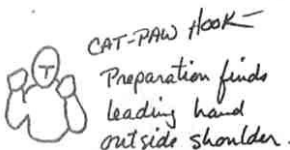 CAT-PAW HOOK—
Preparation finds
leading hand
outside shoulder.